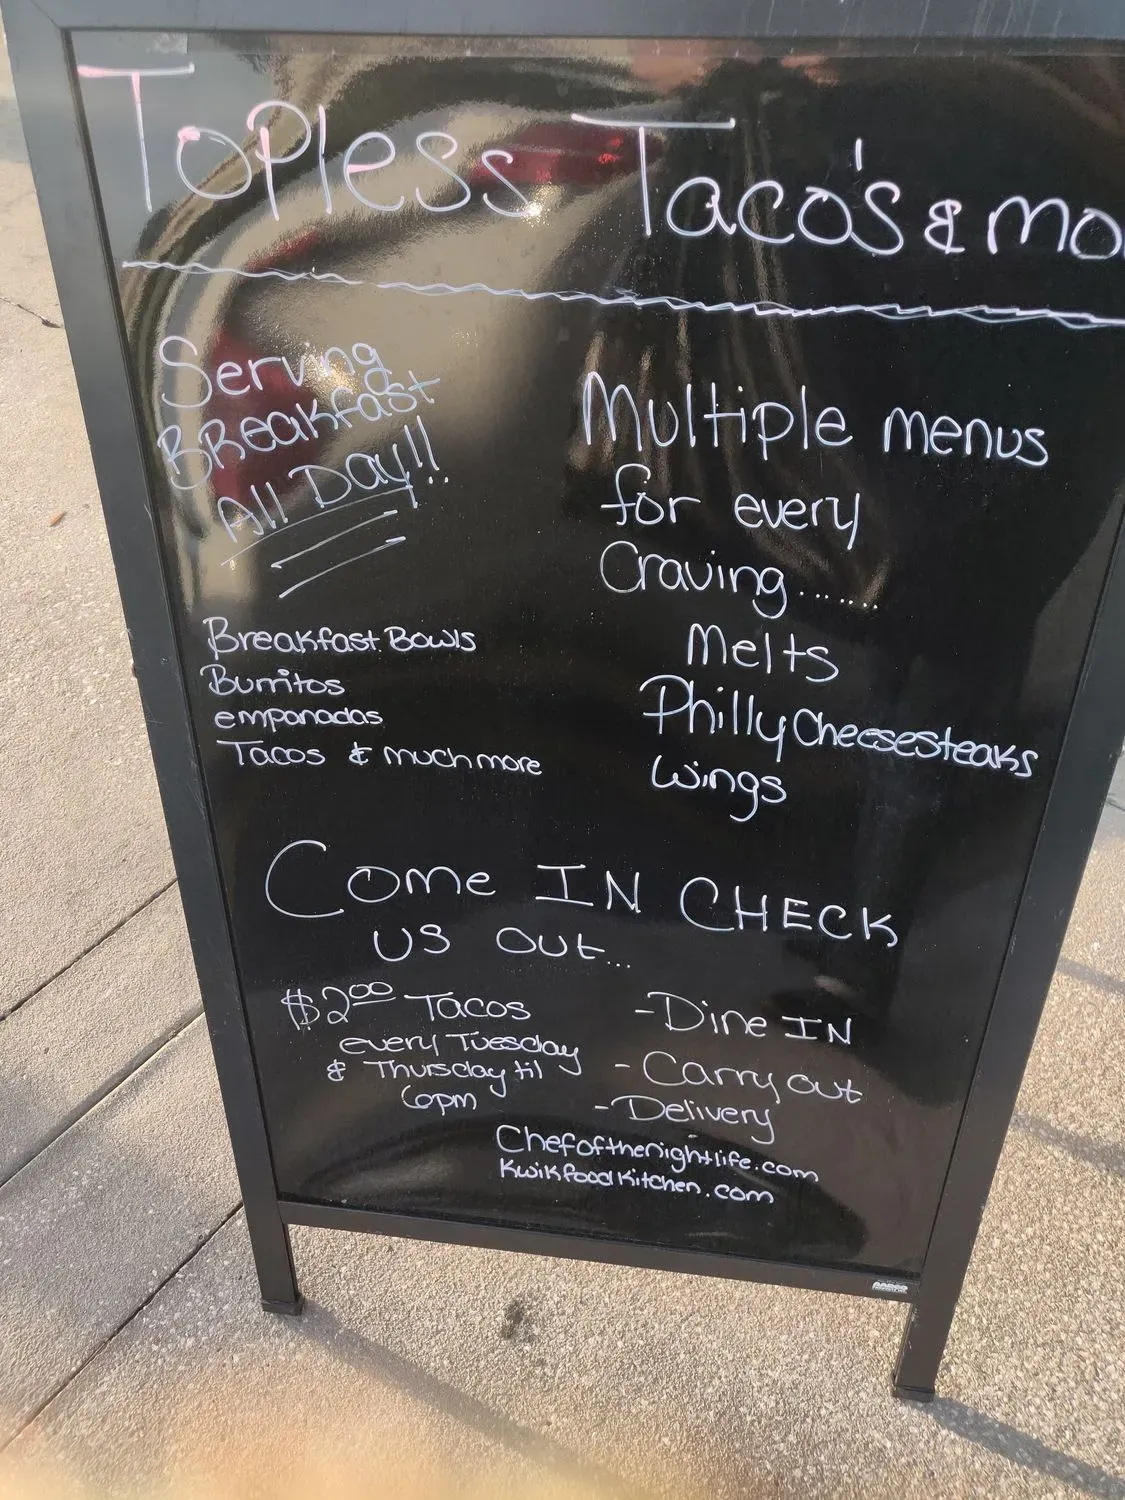 Topless Taco's & mo
Serving
Breakfast
All Day!!
Breakfast Bowls
Burritos
empanadas
Tacos & much more
Multiple menus
for every
Craving.......
Melts
Philly Cheesesteaks
Wings
Come IN CHECK
us out...
$2.00 Tacos
every Tuesday
& Thursday til
6pm
-Dine IN
-Carry out
-Delivery
Chefofthenightlife.com
KwikfoodKitchen.com